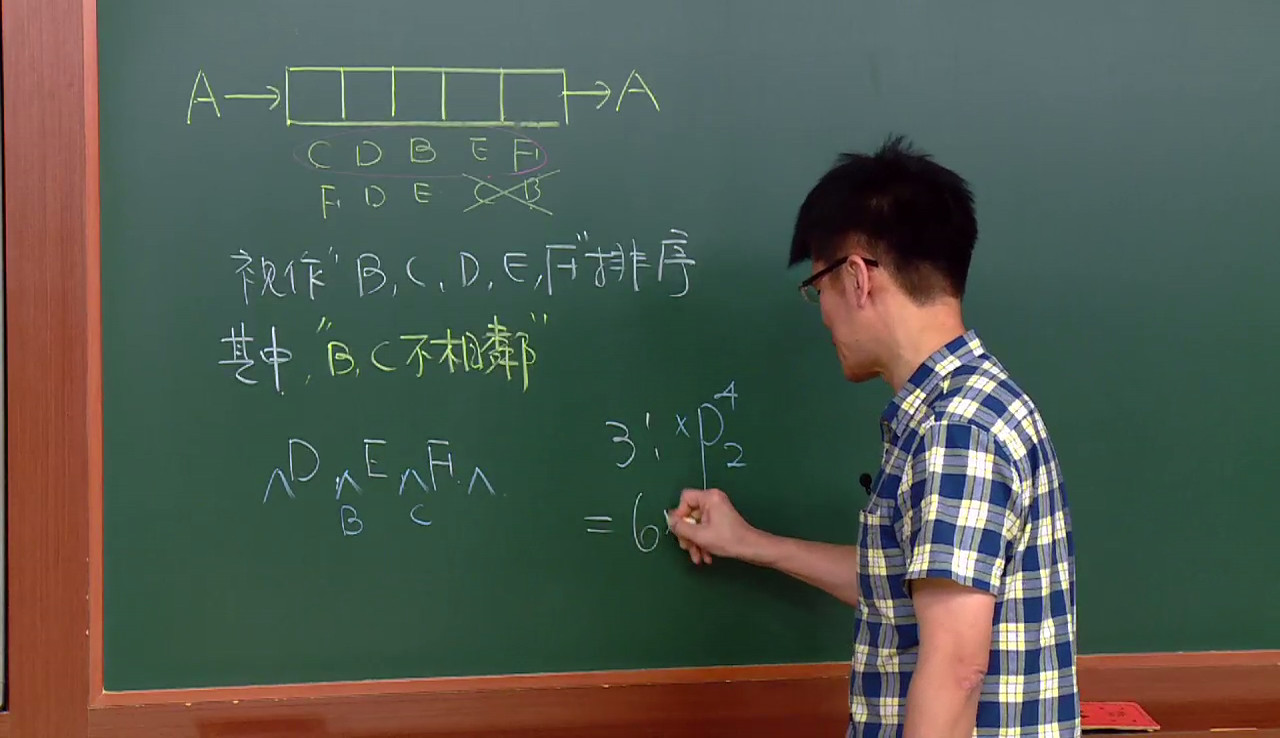 A→ →A
C D B E F
F D E C B
視作"B,C,D,E,F"排序
其中,"B,C不相鄰"
∧D∧E∧F∧
B C
3!×P⁴₂
=6×